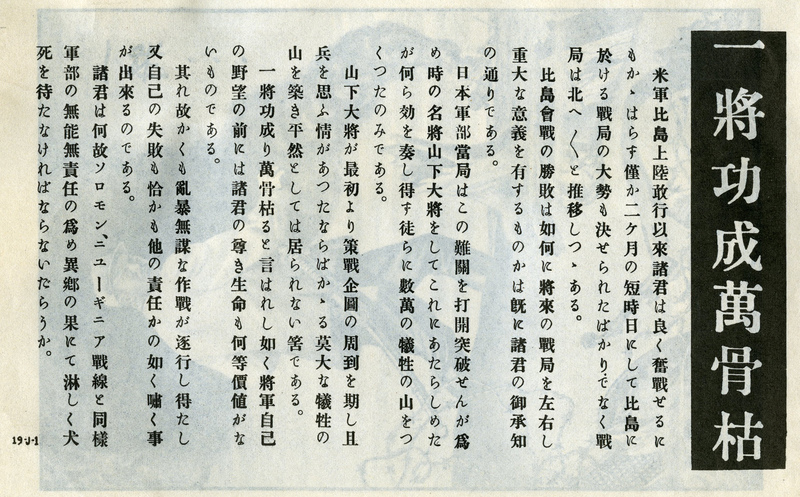 一將功成萬骨枯
米軍比島上陸敢行以來諸君は良く奮戰せるに
もかゝはらす僅か二ケ月の短時日にして比島に
於ける戰局の大勢も決せられたばかりでなく戰
局は北へ〱と推移しつゝある。
比島會戰の勝敗は如何に將來の戰局を左右し
重大な意義を有するものかは既に諸君の御承知
の通りである。
日本軍部當局はこの難關を打開突破せんが爲
め時の名將山下大將をしてこれにあたらしめた
が何ら効を奏し得す徒らに數萬の犠牲の山をつ
くつたのみである。
山下大將が最初より策戰企圖の周到を期し且
兵を思ふ情があつたならばかゝる莫大な犠牲の
山を築き平然としては居られない筈である。
一將功成り萬骨枯ると言はれし如く將軍自己
の野望の前には諸君の尊き生命も何等價値がな
いものである。
其れ故かくも亂暴無謀な作戰が逐行し得たし
又自己の失敗も恰かも他の責任かの如く嘯く事
が出來るのである。
諸君は何故ソロモン、ニユーギニア戰線と同樣
軍部の無能無責任の爲め異郷の果にて淋しく犬
死を待たなければならないたらうか。
19-J-1